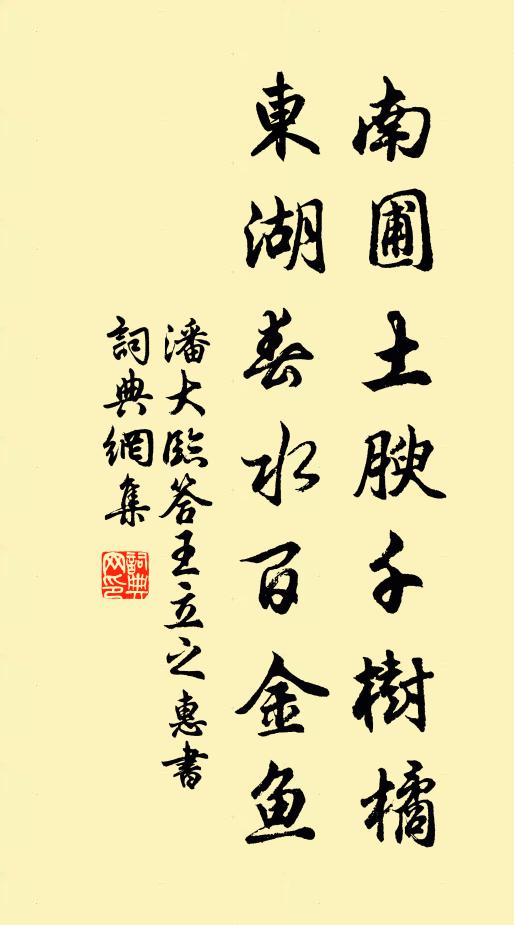 南圃土腴千樹橘
東湖春水百金魚
潘大臨答王立之惠書
詞典網集
詞典
网印